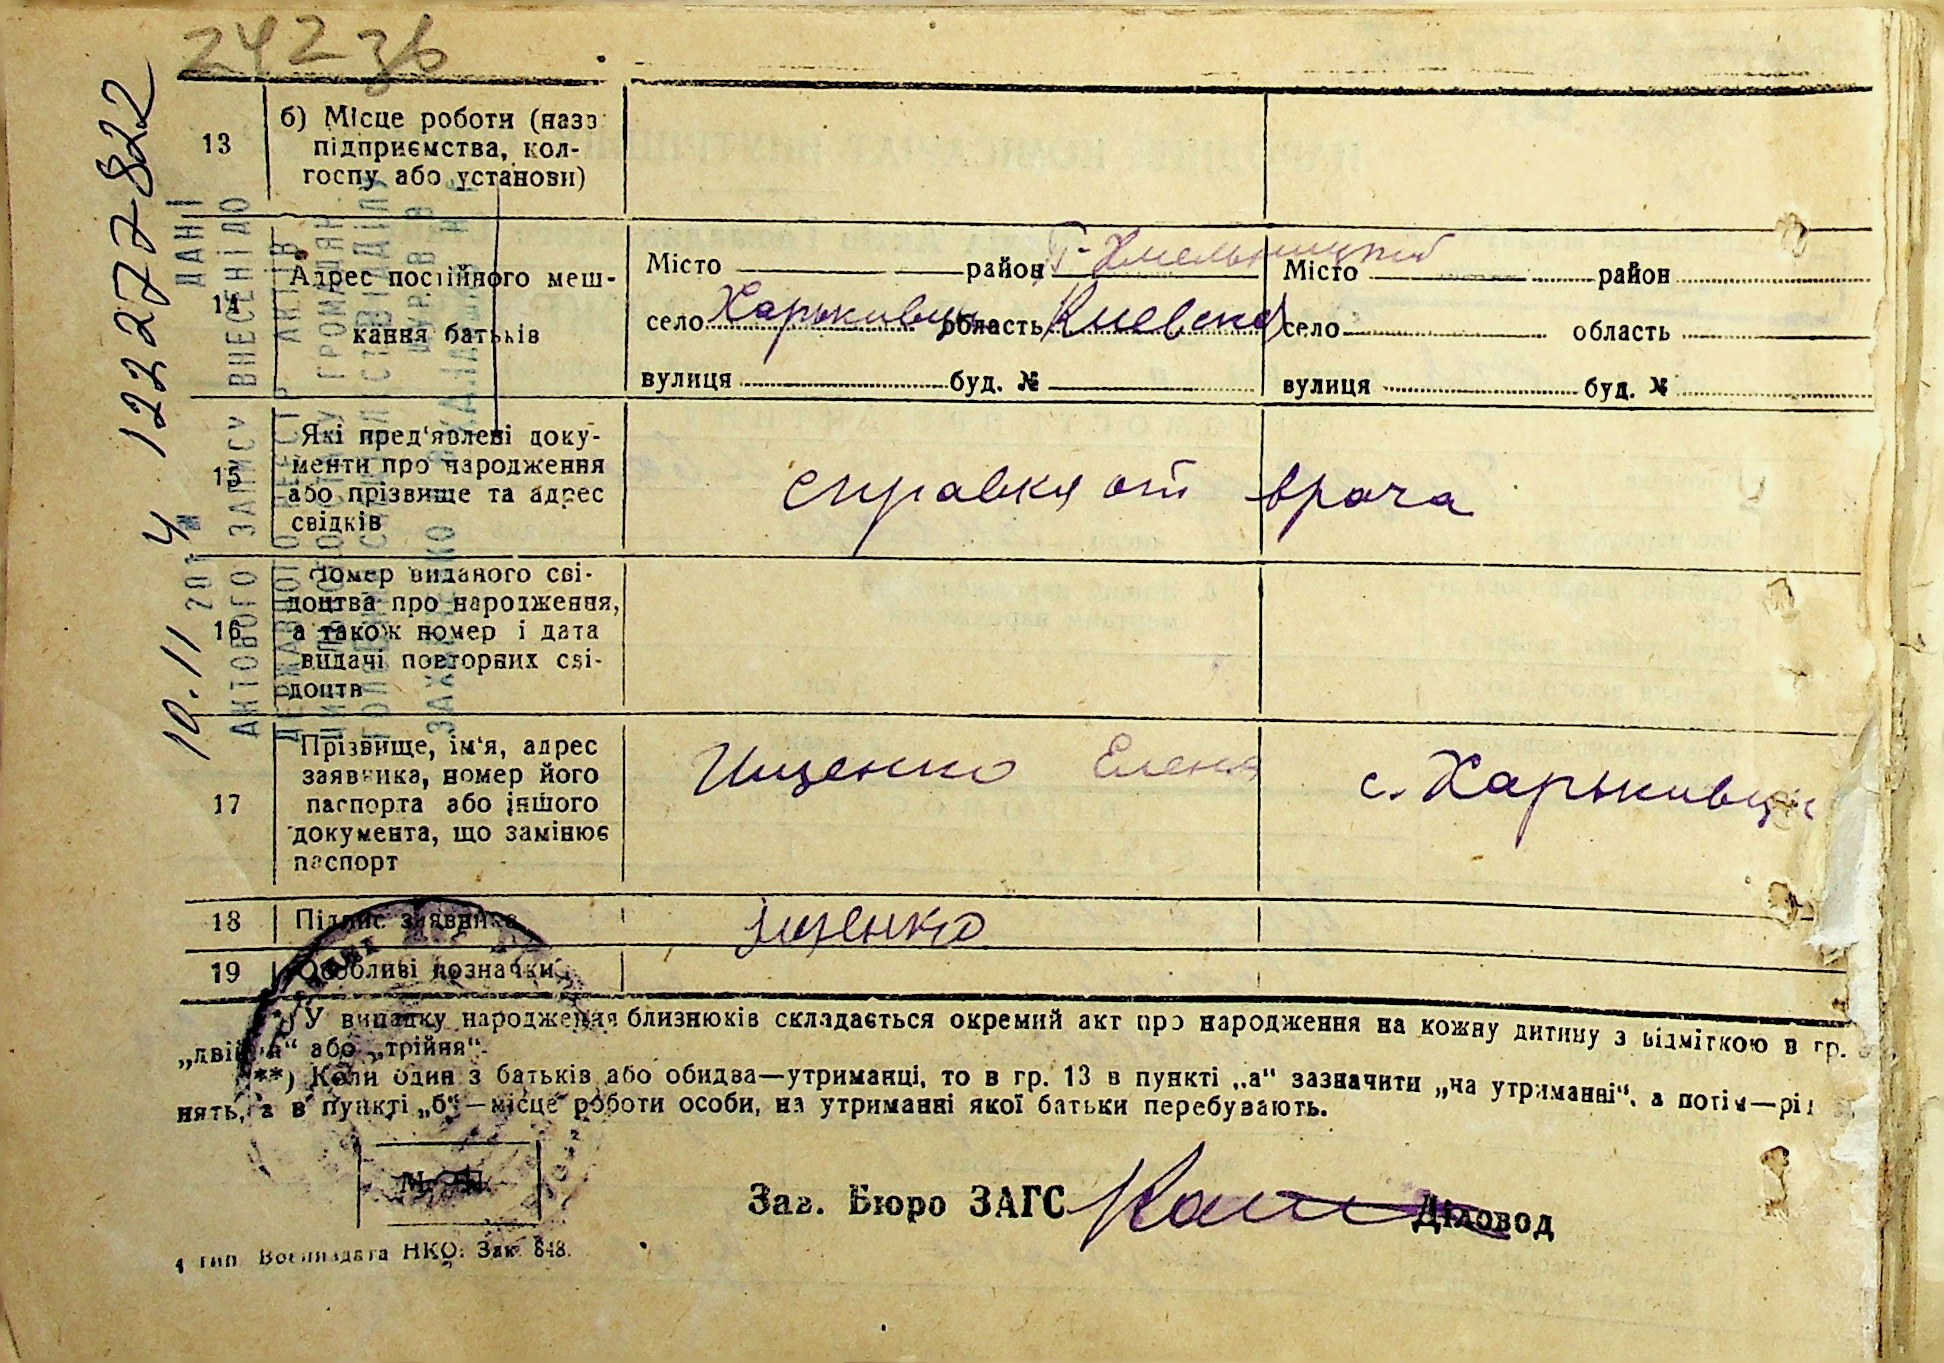 242зв
122277822
10.11 2014
ДАНІ
АКТОВОГО ЗАПИСУ ВНЕСЕНІ ДО
13
б) Місце роботи (назв
підприємства, кол-
госпу або установи)
14
Адрес постійного меш-
кання батьків
Місто район П-Хмельницкий
село Харьковцы область Киевска
вулиця буд. №
Місто район
село область
вулиця буд. №
15
Які пред'явлені доку-
менти про народження
або прізвище та адрес
свідків
справка от врача
16
Номер виданого сві-
доцтва про народження,
а також номер і дата
видачі повторних сві-
доцтв
17
Прізвище, ім'я, адрес
заявника, номер його
паспорта або іншого
документа, що замінює
паспорт
Ищенко Елена с. Харьковцы
18
Підпис заявника
Ищенко
19
Особливі позначки
*) У випадку народження близнюків складається окремий акт про народження на кожну дитину з відміткою в гр.
„двійня“ або „трійня“.
**) Коли один з батьків або обидва—утриманці, то в гр. 13 в пункті „а“ зазначити „на утриманні“, а потім—рід
нять, а в пункті „б“—місце роботи особи, на утриманні якої батьки перебувають.
М. П.
Зав. Бюро ЗАГС
Діловод
4 тип. Воениздата НКО. Зак. 848.